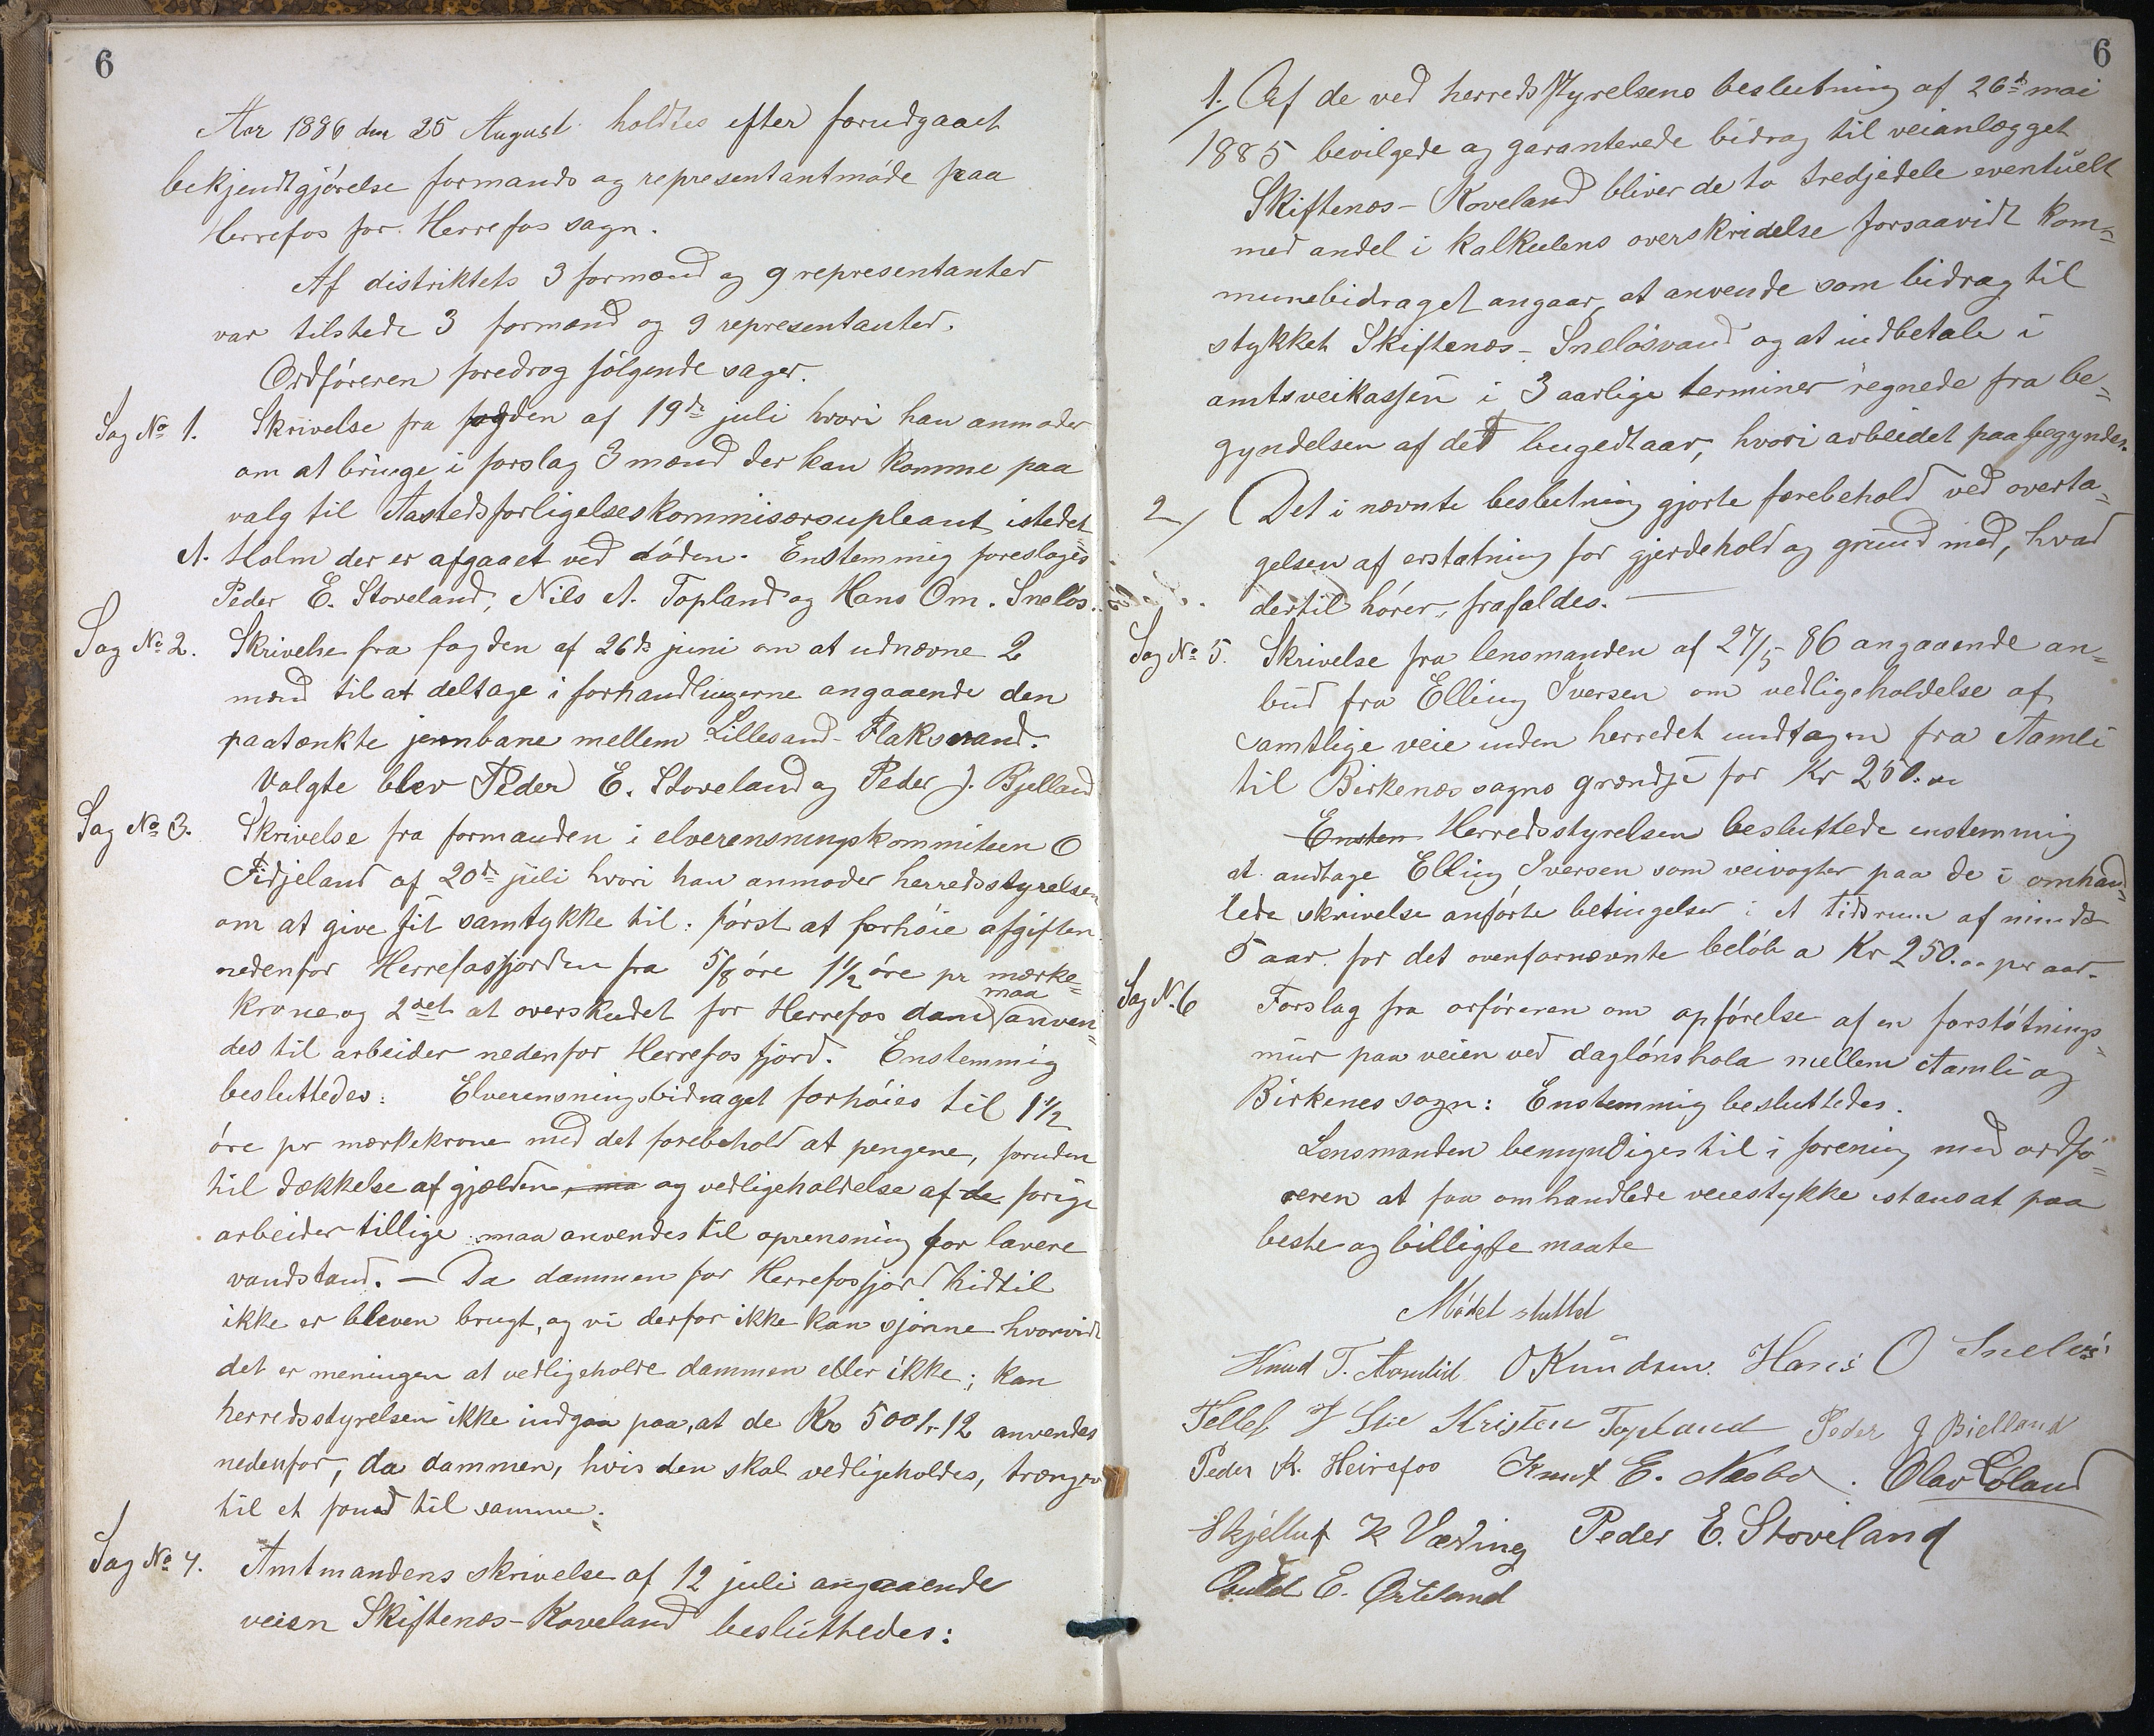 6
Aar 1886 den 25 August holdtes efter forudgaaet
bekjendtgjørelse formands og representantmøde paa
Herrefos for Herrefos sogn.
Af distriktets 3 formænd og 9 representanter
var tilstede 3 formænd og 9 representanter.
Ordføreren foredrog følgende sager.
Sag No 1. Skrivelse fra fogden af 19de juli hvori han anmoder
om at bringe i forslag 3 mænd der kan komme paa
valg til Aastedsforligelseskommisærsupleant istedet
A. Holm der er afgaaet ved døden. Enstemmig foresloges
Peder E. Stoveland, Nils A. Topland og Hans Om. Sneløs.
Sag No 2. Skrivelse fra fogden af 26de juni om at udnævne 2
mænd til at deltage i forhandlingerne angaaende den
paatænkte jernbane mellem Lillesand-Flaksvand.
Valgte blev Peder E. Stoveland og Peder J. Bjelland
Sag No 3. Skrivelse fra formanden i elverensningskommiteen O
Fidjeland af 20de juli hvori han anmoder herredsstyrelsen
om at give sit samtykke til: først at forhøie afgiften
nedenfor Herrefosfjorden fra 5/8 øre 1 1/2 øre pr mærke=
krone og 2det at overskudet for Herrefos dam maa anven=
des til arbeider nedenfor Herrefos fjord. Enstemmig
besluttedes: Elverensningsbidraget forhøies til 1 1/2
øre pr mærkekrone med det forebehold at pengene, foruden
til dækkelse af gjælden, ma og vedligeholdelse af de forige
arbeider tillige maa anvendes til oprensning for lavere
vandstand. — Da dammen for Herrefosfjord hidtil
ikke er bleven brugt, og vi derfor ikke kan sjønne hvorvidt
det er meningen at vedligeholde dammen eller ikke; kan
herredsstyrelsen ikke indgaa paa, at de Kr 5001-12 anvendes
nedenfor, da dammen, hvis den skal vedligeholdes, trænger
til et fond til samme.
Sag No 4. Amtmandens skrivelse af 12 juli angaaende
veien Skiftenæs-Koveland besluttedes:
6
1. Af de ved herredsstyrelsens beslutning af 26de mai
1885 bevilgede og garanterede bidrag til veianlægget
Skiftenæs-Koveland bliver de to tredjedele eventuelt
med andel i kalkulens overskridelse forsaavidt kom=
munebidraget angaar, at anvende som bidrag til
stykket Skiftenæs-Sneløsvand og at indbetale i
amtsveikassen i 3 aarlige terminer regnede fra be=
gyndelsen af det bugedtaar, hvori arbeidet paabegyndes.
2/ Det i nævnte beslutning gjorte forebehold ved overta=
gelsen af erstatning for gjerdehold og grund med, hvad
dertil hører, frafaldes.
Sag No 5. Skrivelse fra lensmanden af 27/5 86 angaaende an=
bud fra Elling Iversen om vedligeholdelse af
samtlige veie inden herredet undtagen fra Aamli
til Birkenæs sogns grændse for Kr 250.00
Ensten Herredsstyrelsen besluttede enstemmig
at andtage Elling Iversen som veivogter paa de i omhan=
lede skrivelse anførte betingelser i et tidsrum af mindst
5 aar for det ovenfornævnte beløb a Kr 250.00 per aar.
Sag N. 6 Forslag fra orføreren om opførelse af en forstøtnings=
mur paa veien ved dagløns hola mellem Aamli og
Birkenes sogn: Enstemmig besluttedes.
Lensmanden bemyndiges til i forening med ordfø=
reren at faa omhandlede veiestykke istansat paa
beste og billigste maate
Mødet sluttet
Knud T. Aamlid O Knudsen. Hans O Sneløs
Tellef Kristen Topland Peder J Bielland
Peder K. Heirefos Knut E. Næsbo. Olav Loland
Skjelluf K Væting Peder E. Stoveland
E.